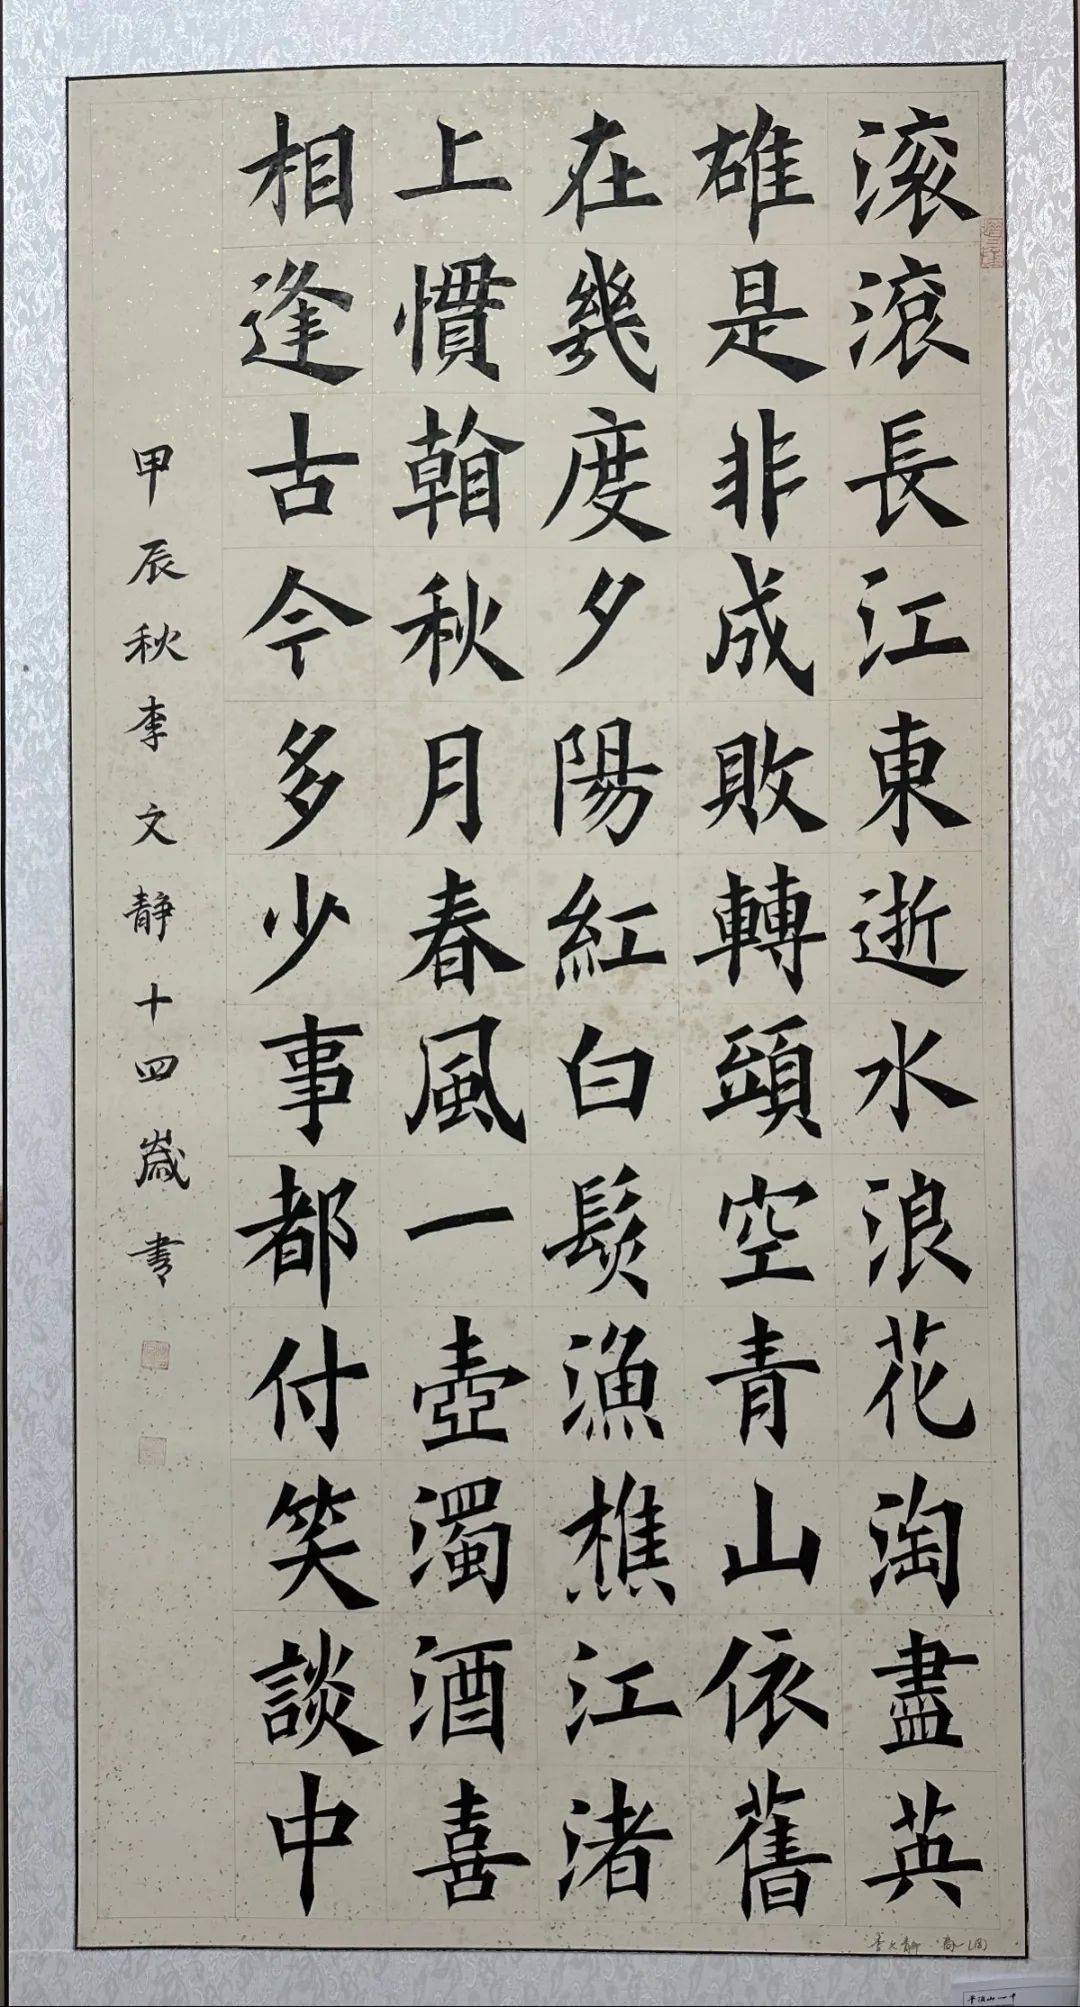 滚滾長江東逝水浪花淘盡英
雄是非成敗轉頭空青山依舊
在幾度夕陽紅白髮漁樵江渚
上慣看秋月春風一壺濁酒喜
相逢古今多少事都付笑談中
甲辰秋李文靜十四歲書
李文静
平顶山一中